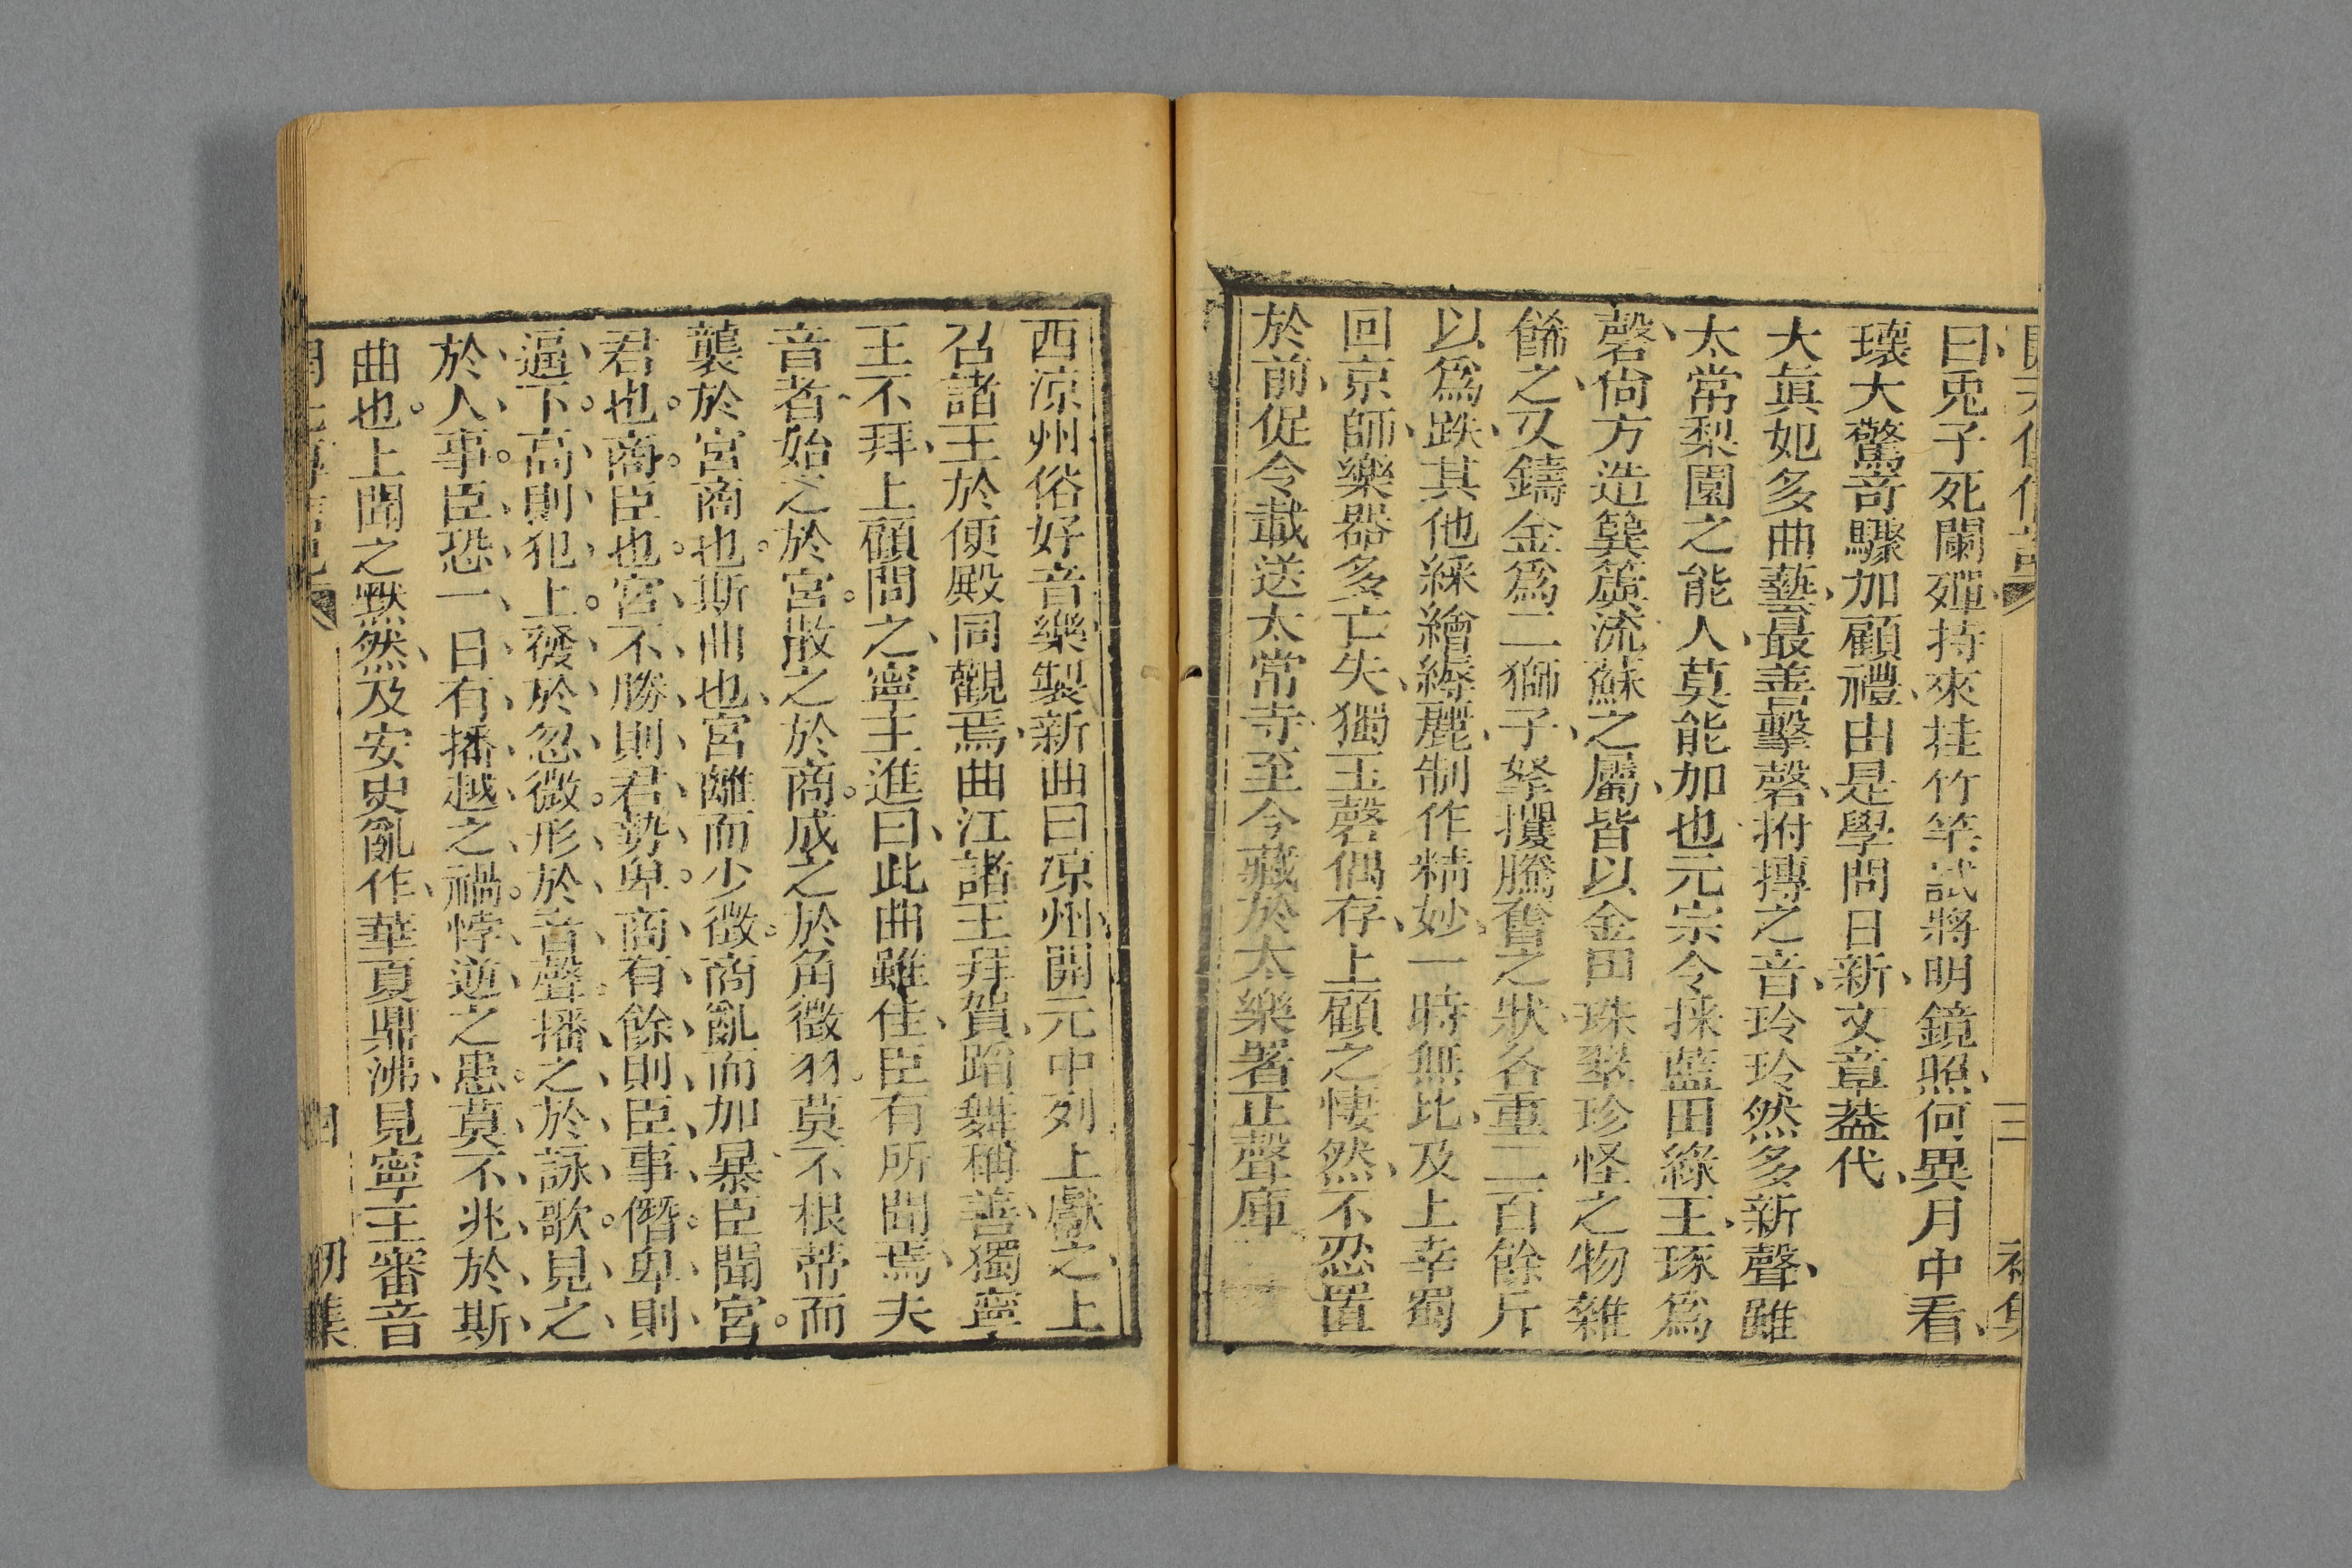 開天傳信記 三 初集
曰兎子死闌殫持來挂竹竿試將明鏡照何異月中看
瓌大驚竒驟加顧禮由是學問日新文章葢代
大眞妃多曲藝最善擊磬拊搏之音玲玲然多新聲雖
太常梨園之能人莫能加也元宗令採藍田綠玉琢爲
磬尙方造簨簴流蘇之屬皆以金田珠翠珍怪之物雜
餙之又鑄金爲二獅子拏攫騰奮之狀各重二百餘斤
以爲趺其他綵繪縟麗制作精妙一時無比及上幸蜀
回京師樂器多亡失獨玉磬偶存上顧之悽然不忍置
於前促令載送太常寺至今藏於太樂署正聲庫
西凉州俗好音樂製新曲曰凉州開元中列上獻之上
召諸王於便殿同觀焉曲江諸王拜賀蹈舞稱善獨寧
王不拜上顧問之寧王進曰此曲雖佳臣有所聞焉夫
音者始之於宮散之於商成之於角徵羽莫不根蔕而
襲於宮商也斯曲也宮離而少徵商亂而加暴臣聞宮
君也商臣也宮不勝則君勢卑商有餘則臣事僭卑則
逼下高則犯上發於忽微形於音聲播之於詠歌見之
於人事臣恐一日有播越之禍悖逆之患莫不兆於斯
曲也上聞之默然及安史亂作華夏鼎沸見寧王審音
四 初集